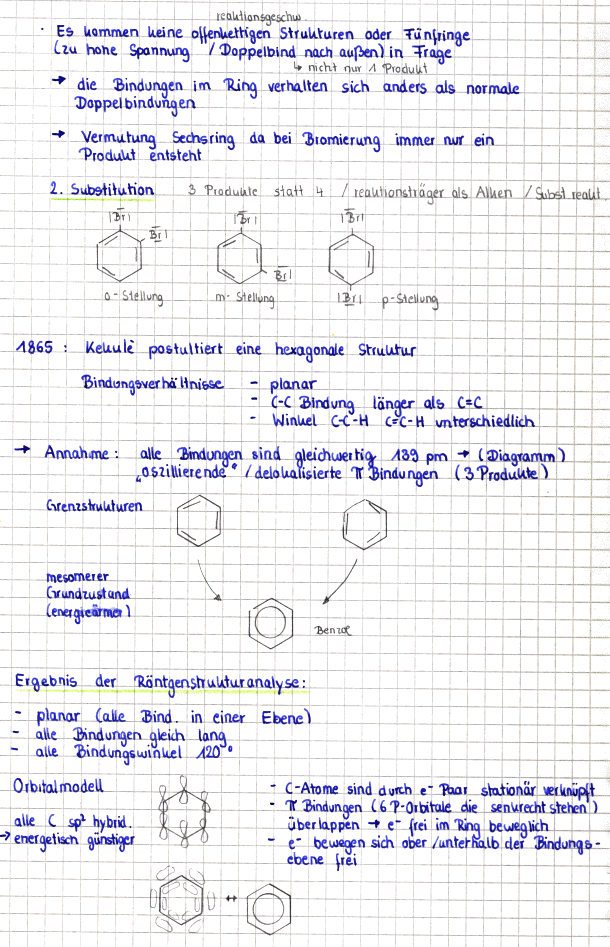 reaktionsgeschw.
· Es kommen keine offenkettigen Strukturen oder Fünfringe
(zu hohe Spannung / Doppelbind nach außen) in Frage
↳ nicht nur 1 Produkt
→ die Bindungen im Ring verhalten sich anders als normale
Doppelbindungen
→ Vermutung Sechsring da bei Bromierung immer nur ein
Produkt entsteht
2. Substitution 3 Produkte statt 4 / reaktionsträger als Alken / Subst reakt.
|Br| |Br| |Br|
Br|
Br|
|Br|
o-Stellung m-Stellung p-Stellung
1865 : Kekulè postultiert eine hexagonale Struktur
Bindungsverhältnisse - planar
- C-C Bindung länger als C=C
- Winkel C-C-H C=C-H unterschiedlich
→ Annahme: alle Bindungen sind gleichwertig 139 pm → (Diagramm)
„oszillierende“ / delokalisierte π Bindungen (3 Produkte)
Grenzstrukturen
mesomerer
Grundzustand
(energieärmer)
Benzol
Ergebnis der Röntgenstrukturanalyse:
- planar (alle Bind. in einer Ebene)
- alle Bindungen gleich lang
- alle Bindungswinkel 120°
Orbitalmodell
alle C sp² hybrid.
→ energetisch günstiger
- C-Atome sind durch e⁻ Paar stationär verknüpft
- π Bindungen (6 P-Orbitale die senkrecht stehen)
überlappen → e⁻ frei im Ring beweglich
- e⁻ bewegen sich ober/unterhalb der Bindungs-
ebene frei
↔